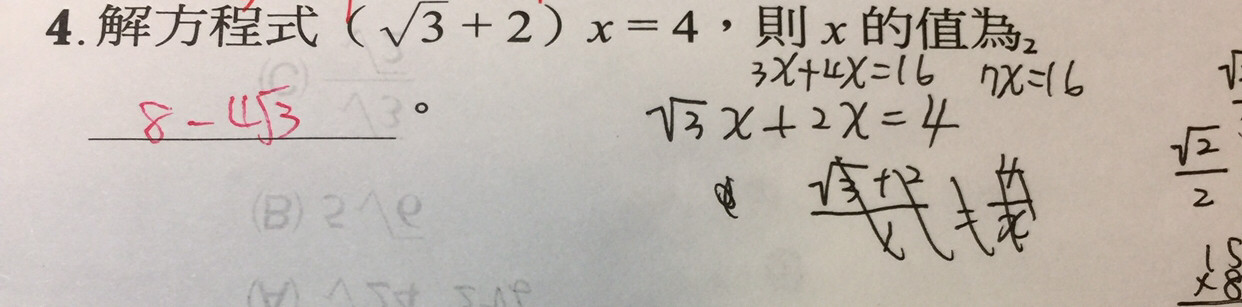 4. 解方程式（√3 + 2）x = 4，則 x 的值為
3x+4x=16 7x=16
8-4√3 。
√3 x + 2x = 4
√3 + 2 / x = 4 / x
√2 / 2
15
×8